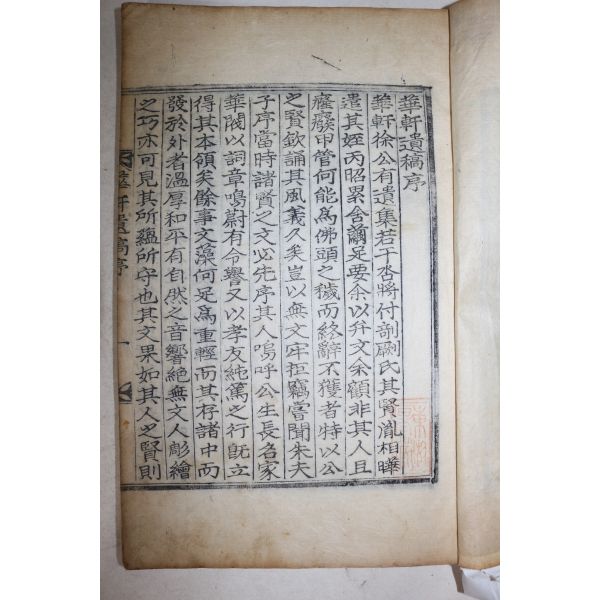 華軒遺稿序
華軒徐公有遺集若干沓將付剞劂氏其賢胤相曄
遣其姪丙昭累舍繭足要余以弁文余顧非其人且
癃癈甲管何能爲佛頭之穢而終辭不獲者特以公
之賢欽誦其風義久矣豈以無文牢拒竊嘗聞朱夫
子序當時諸賢之文必先序其人嗚呼公生長名家
華閥以詞章鳴蔚有令譽又以孝友純篤之行旣立
得其本領矣餘事文藻何足爲重輕而其存諸中而
發於外者溫厚和平有自然之音響絶無文人彫繪
之巧亦可見其所蘊所守也其文果如其人之賢則
華軒遺稿序 一